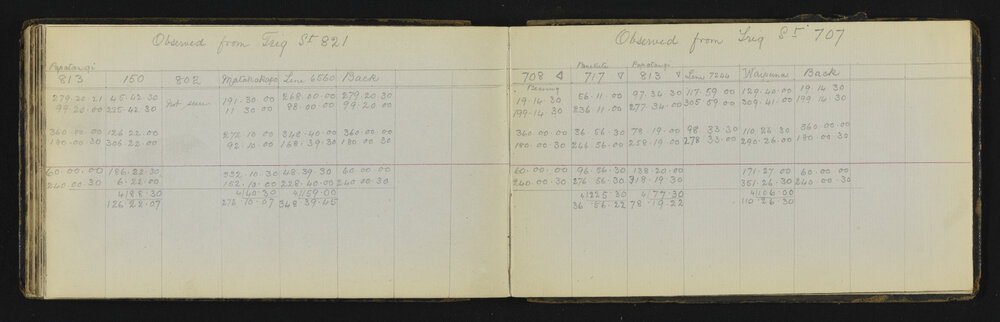 Observed from Trig St 821
Papatangi
813 150 802 Matahakapo Line 6560 Back
279.20.21 45.42.30 Not seen 191.30.00 268.00.00 279.20.30
99.20.00 225.42.30 11.30.00 88.00.00 99.20.00
360.00.00 126.22.00 272.10.00 348.40.00 360.00.00
180.00.30 306.22.00 92.10.00 168.39.30 180.00.30
60.00.00 186.22.30 332.10.30 48.39.30 60.00.00
240.00.30 6.22.00 152.10.00 228.40.00 240.00.30
4)88.30 4)40.30 4)159.00
126.22.07 272.10.07 348.39.45
Observed from Trig St 707
Papatangi
708 717 813 Line 7244 Waipuna Back
Bearing
19.14.30 56.11.00 97.34.30 117.59.00 129.40.00 19.14.30
199.14.30 236.11.00 277.34.00 305.59.00 309.41.00 199.14.30
360.00.00 36.56.30 78.19.00 98.33.30 110.26.30 360.00.00
180.00.30 216.56.00 258.19.00 278.33.00 290.26.00 180.00.30
60.00.00 96.56.30 138.20.00 171.27.00 60.00.00
240.00.30 276.56.30 318.19.30 351.26.30 240.00.30
4)225.30 4)77.30 4)106.00
36.56.22 78.19.22 110.26.30